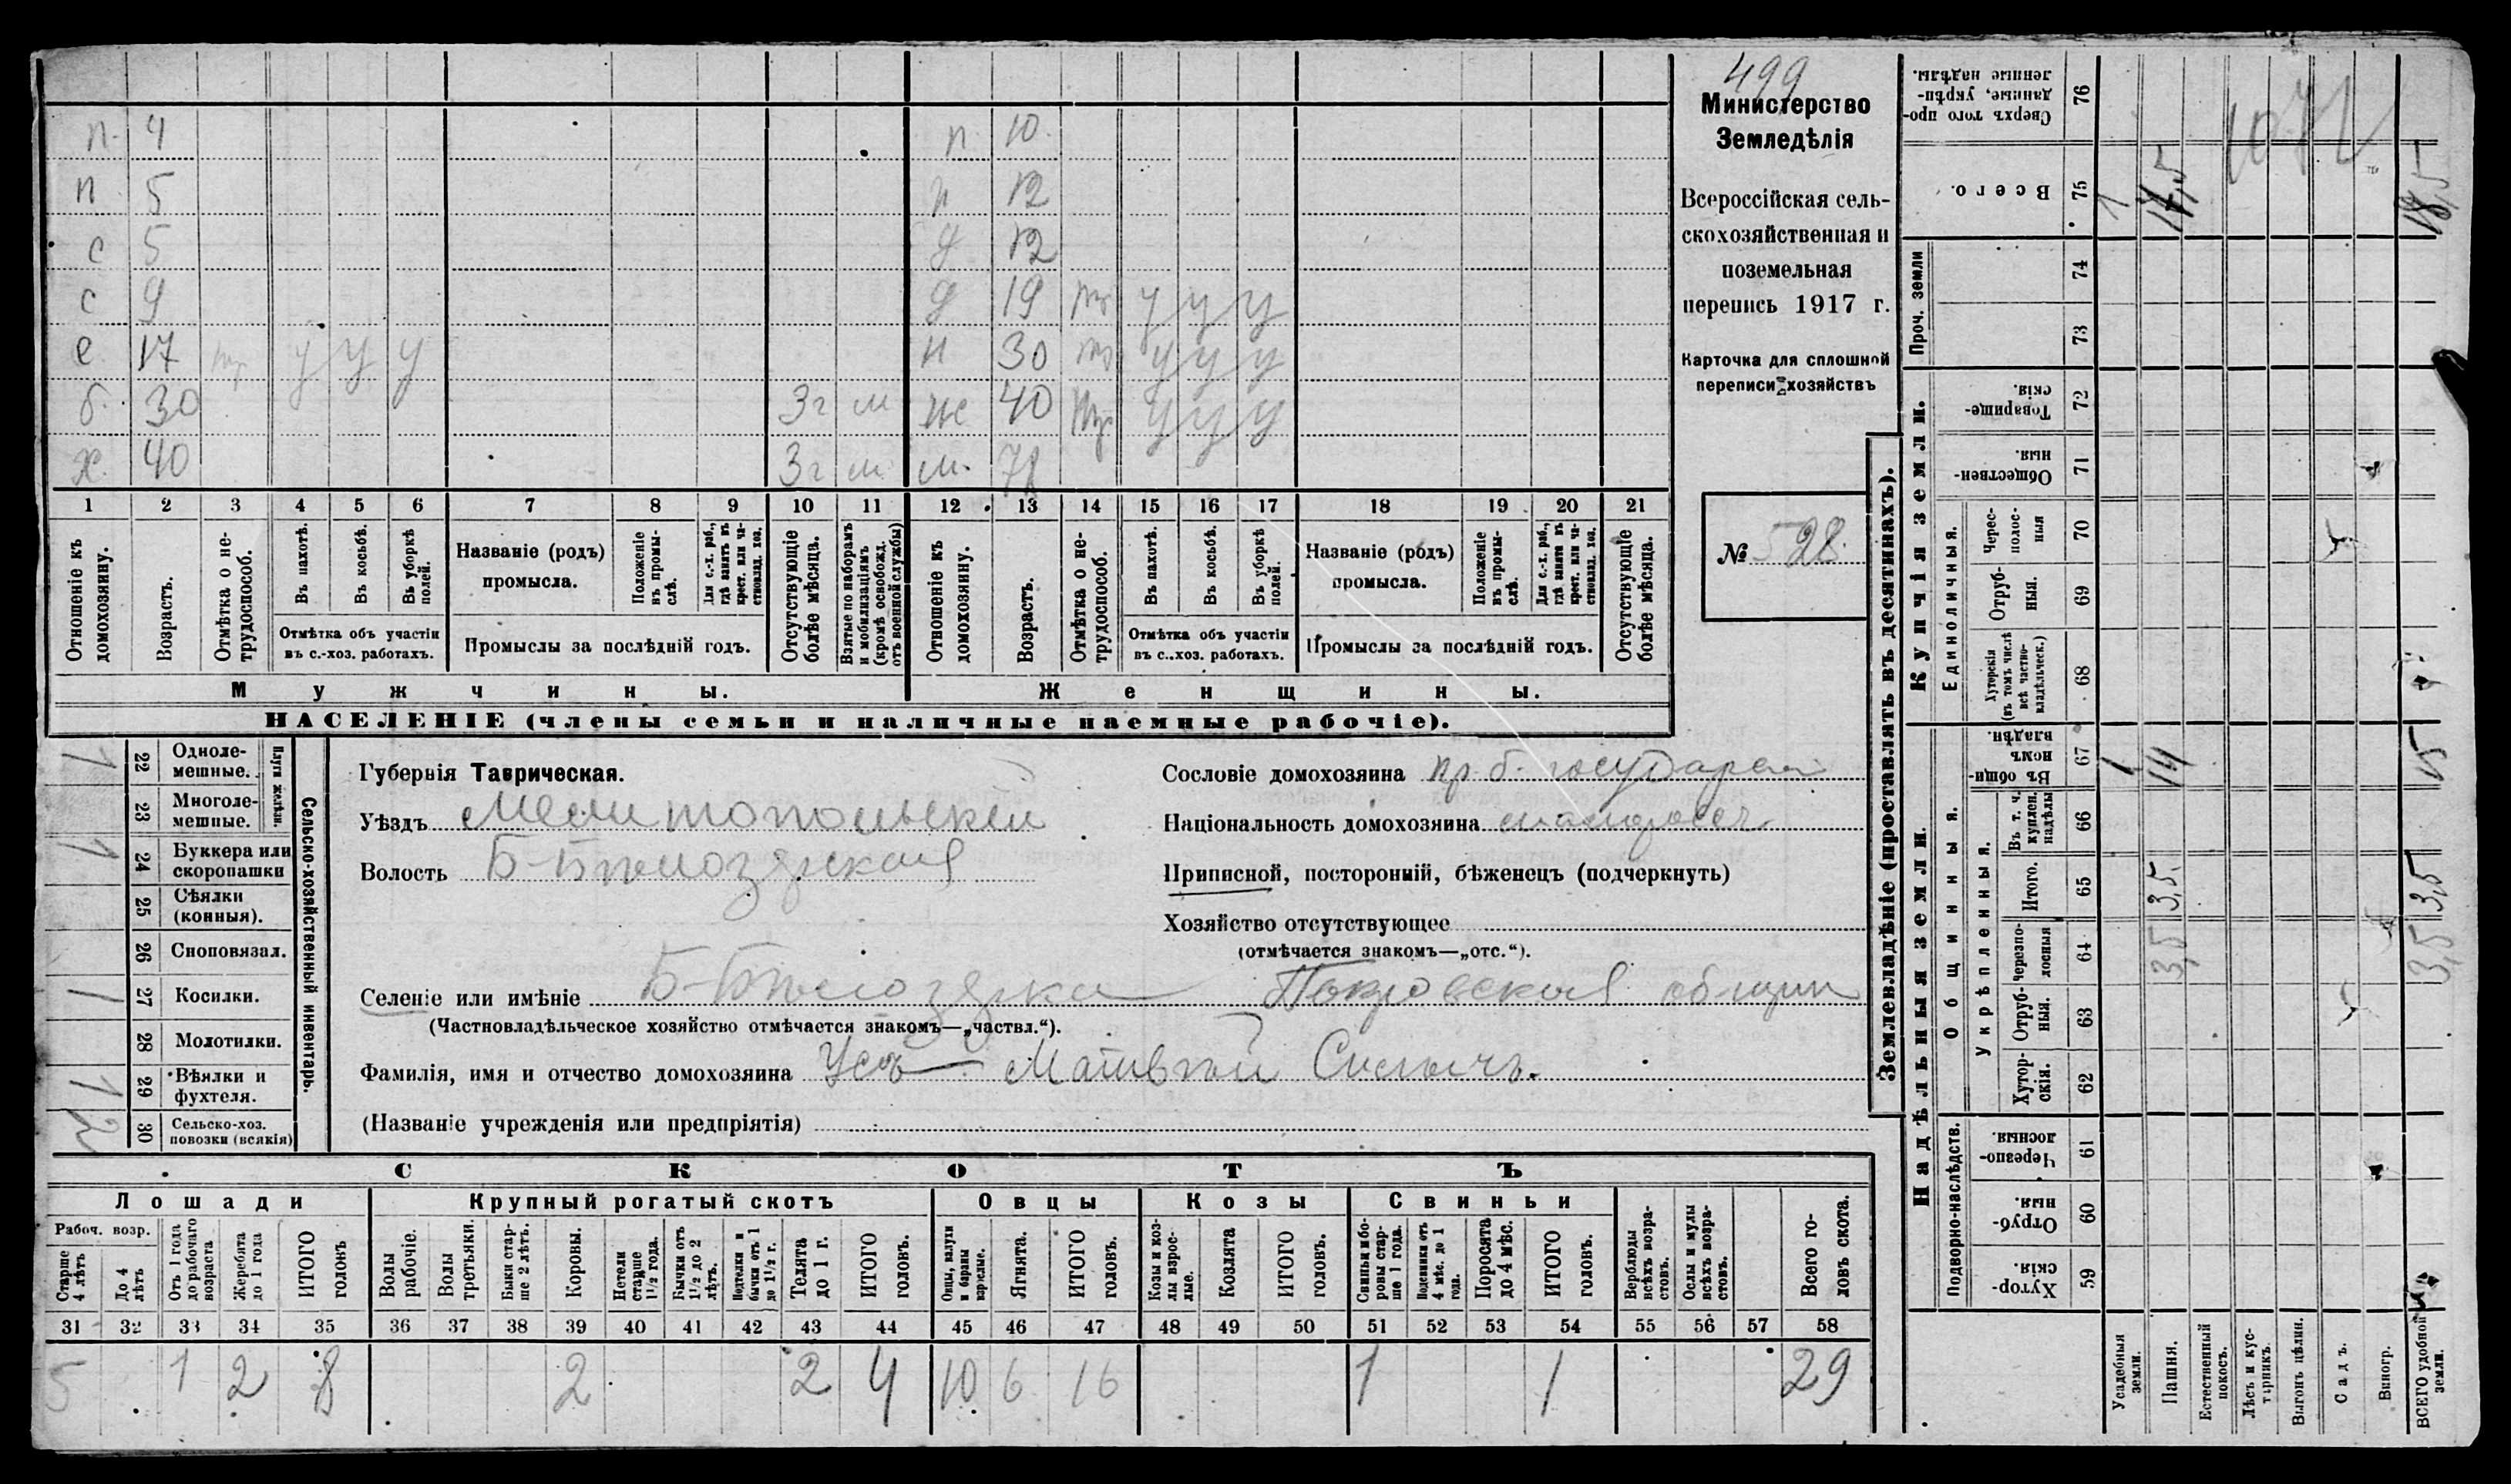 499
Министерство
Земледѣлія
Всероссійская сель-
скохозяйственная и
поземельная
перепись 1917 г.
Карточка для сплошной
переписи хозяйствъ
№ 528.
п. 4 п. 10.
п 5 п 12
с 5 д 12
с 9 д 19 у у у
с 17 у у у н 30 у у у
б. 30 3г м ж 40 у у у
х. 40 3г м м. 78
1 2 3 4 5 6 7 8 9 10 11 12 13 14 15 16 17 18 19 20 21
Отношеніе къ домохозяину.
Возрастъ.
Отмѣтка о не-трудоспособ.
Въ пахотѣ.
Въ косьбѣ.
Въ уборкѣ полей.
Отмѣтка объ участіи
въ с.-хоз. работахъ.
Названіе (родъ)
промысла.
Положеніе въ промы-слѣ.
Для с.-х. раб., гдѣ занятъ въ крест. или ча-стновлад. хоз.
Промыслы за послѣдній годъ.
Отсутствующіе болѣе мѣсяца.
Взятые по наборамъ и мобилизаціямъ (кромѣ освобожд. отъ военной службы)
Отношеніе къ домохозяину.
Возрастъ.
Отмѣтка о не-трудоспособ.
Въ пахотѣ.
Въ косьбѣ.
Въ уборкѣ полей.
Отмѣтка объ участіи
въ с.-хоз. работахъ.
Названіе (родъ)
промысла.
Положеніе въ промы-слѣ.
Для с.-х. раб., гдѣ занята въ крест. или ча-стновлад. хоз.
Промыслы за послѣдній годъ.
Отсутствующіе болѣе мѣсяца.
Мужчины. Женщины.
НАСЕЛЕНІЕ (члены семьи и наличные наемные рабочіе).
Сельско-хозяйственный инвентарь.
Плуги желѣзн.
22 Одноле-мешные. 1
23 Многоле-мешные.
24 Буккера или скоропашки 1
25 Сѣялки (конныя).
26 Сноповязал.
27 Косилки. 1
28 Молотилки.
29 Вѣялки и фухтеля. 1
30 Сельско-хоз. повозки (всякія) 2
Губернія Таврическая.
Уѣздъ Мелитопольскій
Волость Б-Бѣлозерская
Сословіе домохозяина пр. б. государст
Національность домохозяина малоросс.
Приписной, посторонній, бѣженецъ (подчеркнуть)
Хозяйство отсутствующее
(отмѣчается знакомъ—„отс.“).
Селеніе или имѣніе Б-Бѣлозерка Покровская общин
(Частновладѣльческое хозяйство отмѣчается знакомъ—„частвл.“).
Фамилія, имя и отчество домохозяина Усъ Матвѣй
(Названіе учрежденія или предпріятія)
СКОТЪ
Лошади Крупный рогатый скотъ Овцы Козы Свиньи
Рабоч. возр.
Старше 4 лѣтъ
До 4 лѣтъ
Отъ 1 года до рабочаго возраста
Жеребята до 1 года
ИТОГО головъ
Волы рабочіе.
Волы третьяки.
Быки стар-ше 2 лѣтъ.
Коровы.
Нетели старше 1½ года.
Бычки отъ 1½ до 2 лѣтъ.
Подтелки и бычки отъ 1 до 1½ г.
Телята до 1 г.
ИТОГО головъ.
Овцы, валухи и бараны взрослые.
Ягнята.
ИТОГО головъ.
Козы и коз-лы взрос-лые.
Козлята
ИТОГО головъ.
Свиньи и бо-ровы стар-ше 1 года.
Подсвинки отъ 4 мѣс. до 1 года.
Поросята до 4 мѣс.
ИТОГО головъ.
Верблюды всѣхъ возра-стовъ.
Ослы и мулы всѣхъ возра-стовъ.
Всего го-ловъ скота.
31 32 33 34 35 36 37 38 39 40 41 42 43 44 45 46 47 48 49 50 51 52 53 54 55 56 57 58
5 1 2 8 2 2 4 10 6 16 1 1 29
Землевладѣніе (проставлять въ десятинахъ).
Надѣльныя земли.
Купчія земли.
Проч. земли
Подворно-наслѣдств.
Общинныя.
Укрѣпленныя.
Единоличныя.
Хутор-скія. 59
Отруб-ныя. 60
Черезпо-лосныя. 61
Хутор-скія. 62
Отруб-ныя. 63
Черезпо-лосныя 64 3,5 3,5
Итого. 65 3,5. 3,5
Въ т. ч. куплен. надѣлы 66
Въ общин-номъ владѣн. 67 1 14 15
Хуторскія (въ томъ числѣ всѣ частно-владѣльческ.) 68
Отруб-ныя. 69
Черес-полос-ныя 70
Обществен-ныя. 71
Товарище-скія. 72
73
74
Всего. 75 1 17,5 18,5
Сверхъ того про-данные, укрѣп-ленные надѣлы. 76
Усадебныя земли.
Пашня.
Естественный покосъ.
Лѣсъ и кус-тарникъ.
Выгонъ цѣлин.
Садъ.
Виногр.
ВСЕГО удобной земли.